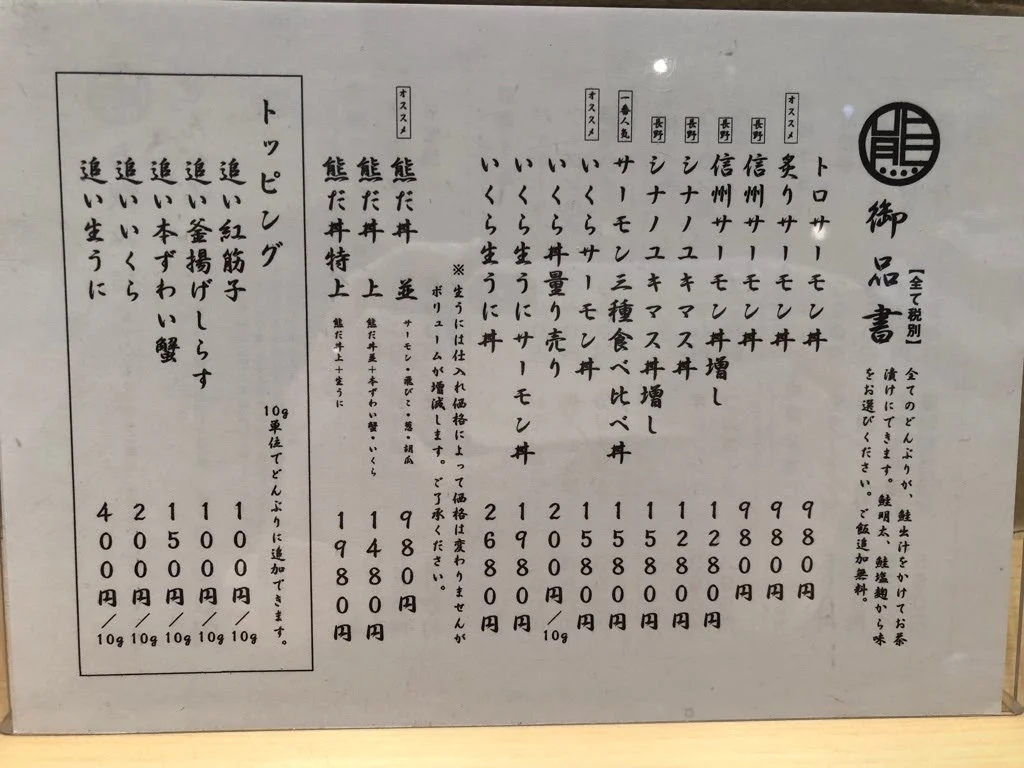 熊
御品書
【全て税別】
全てのどんぶりが、鮭出汁をかけてお茶
漬けにできます。鮭明太、鮭塩麹から味
をお選びください。ご飯追加無料。
トロサーモン丼 980円
オススメ 炙りサーモン丼 980円
長野 信州サーモン丼 980円
長野 信州サーモン丼増し 1280円
長野 シナノユキマス丼 1280円
長野 シナノユキマス丼増し 1580円
一番人気 サーモン三種食べ比べ丼 1580円
オススメ いくらサーモン丼 1580円
いくら丼量り売り 200円/10g
いくら生うにサーモン丼 1980円
いくら生うに丼 2680円
※生うには仕入れ価格によって価格は変わりませんが
ボリュームが増減します。ご了承ください。
オススメ 熊だ丼 並 サーモン・飛びこ・葱・胡瓜 980円
熊だ丼 上 熊だ丼並+本ずわい蟹・いくら 1480円
熊だ丼特上 熊だ丼上+生うに 1980円
トッピング
10g単位でどんぶりに追加できます。
追い紅筋子 100円/10g
追い釜揚げしらす 100円/10g
追い本ずわい蟹 150円/10g
追いいくら 200円/10g
追い生うに 400円/10g